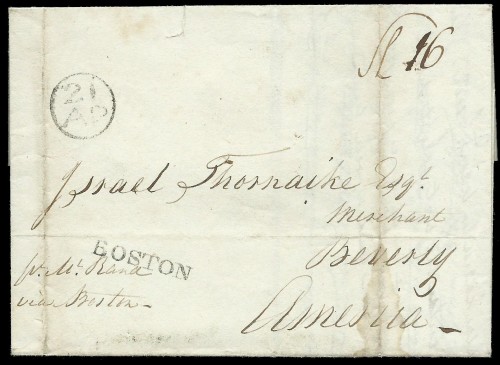 Sh 16
21
AP
Israel Thornaike Esqr.
Merchant
BOSTON
Beverly
pr. Mr. Rand
via Boston
America